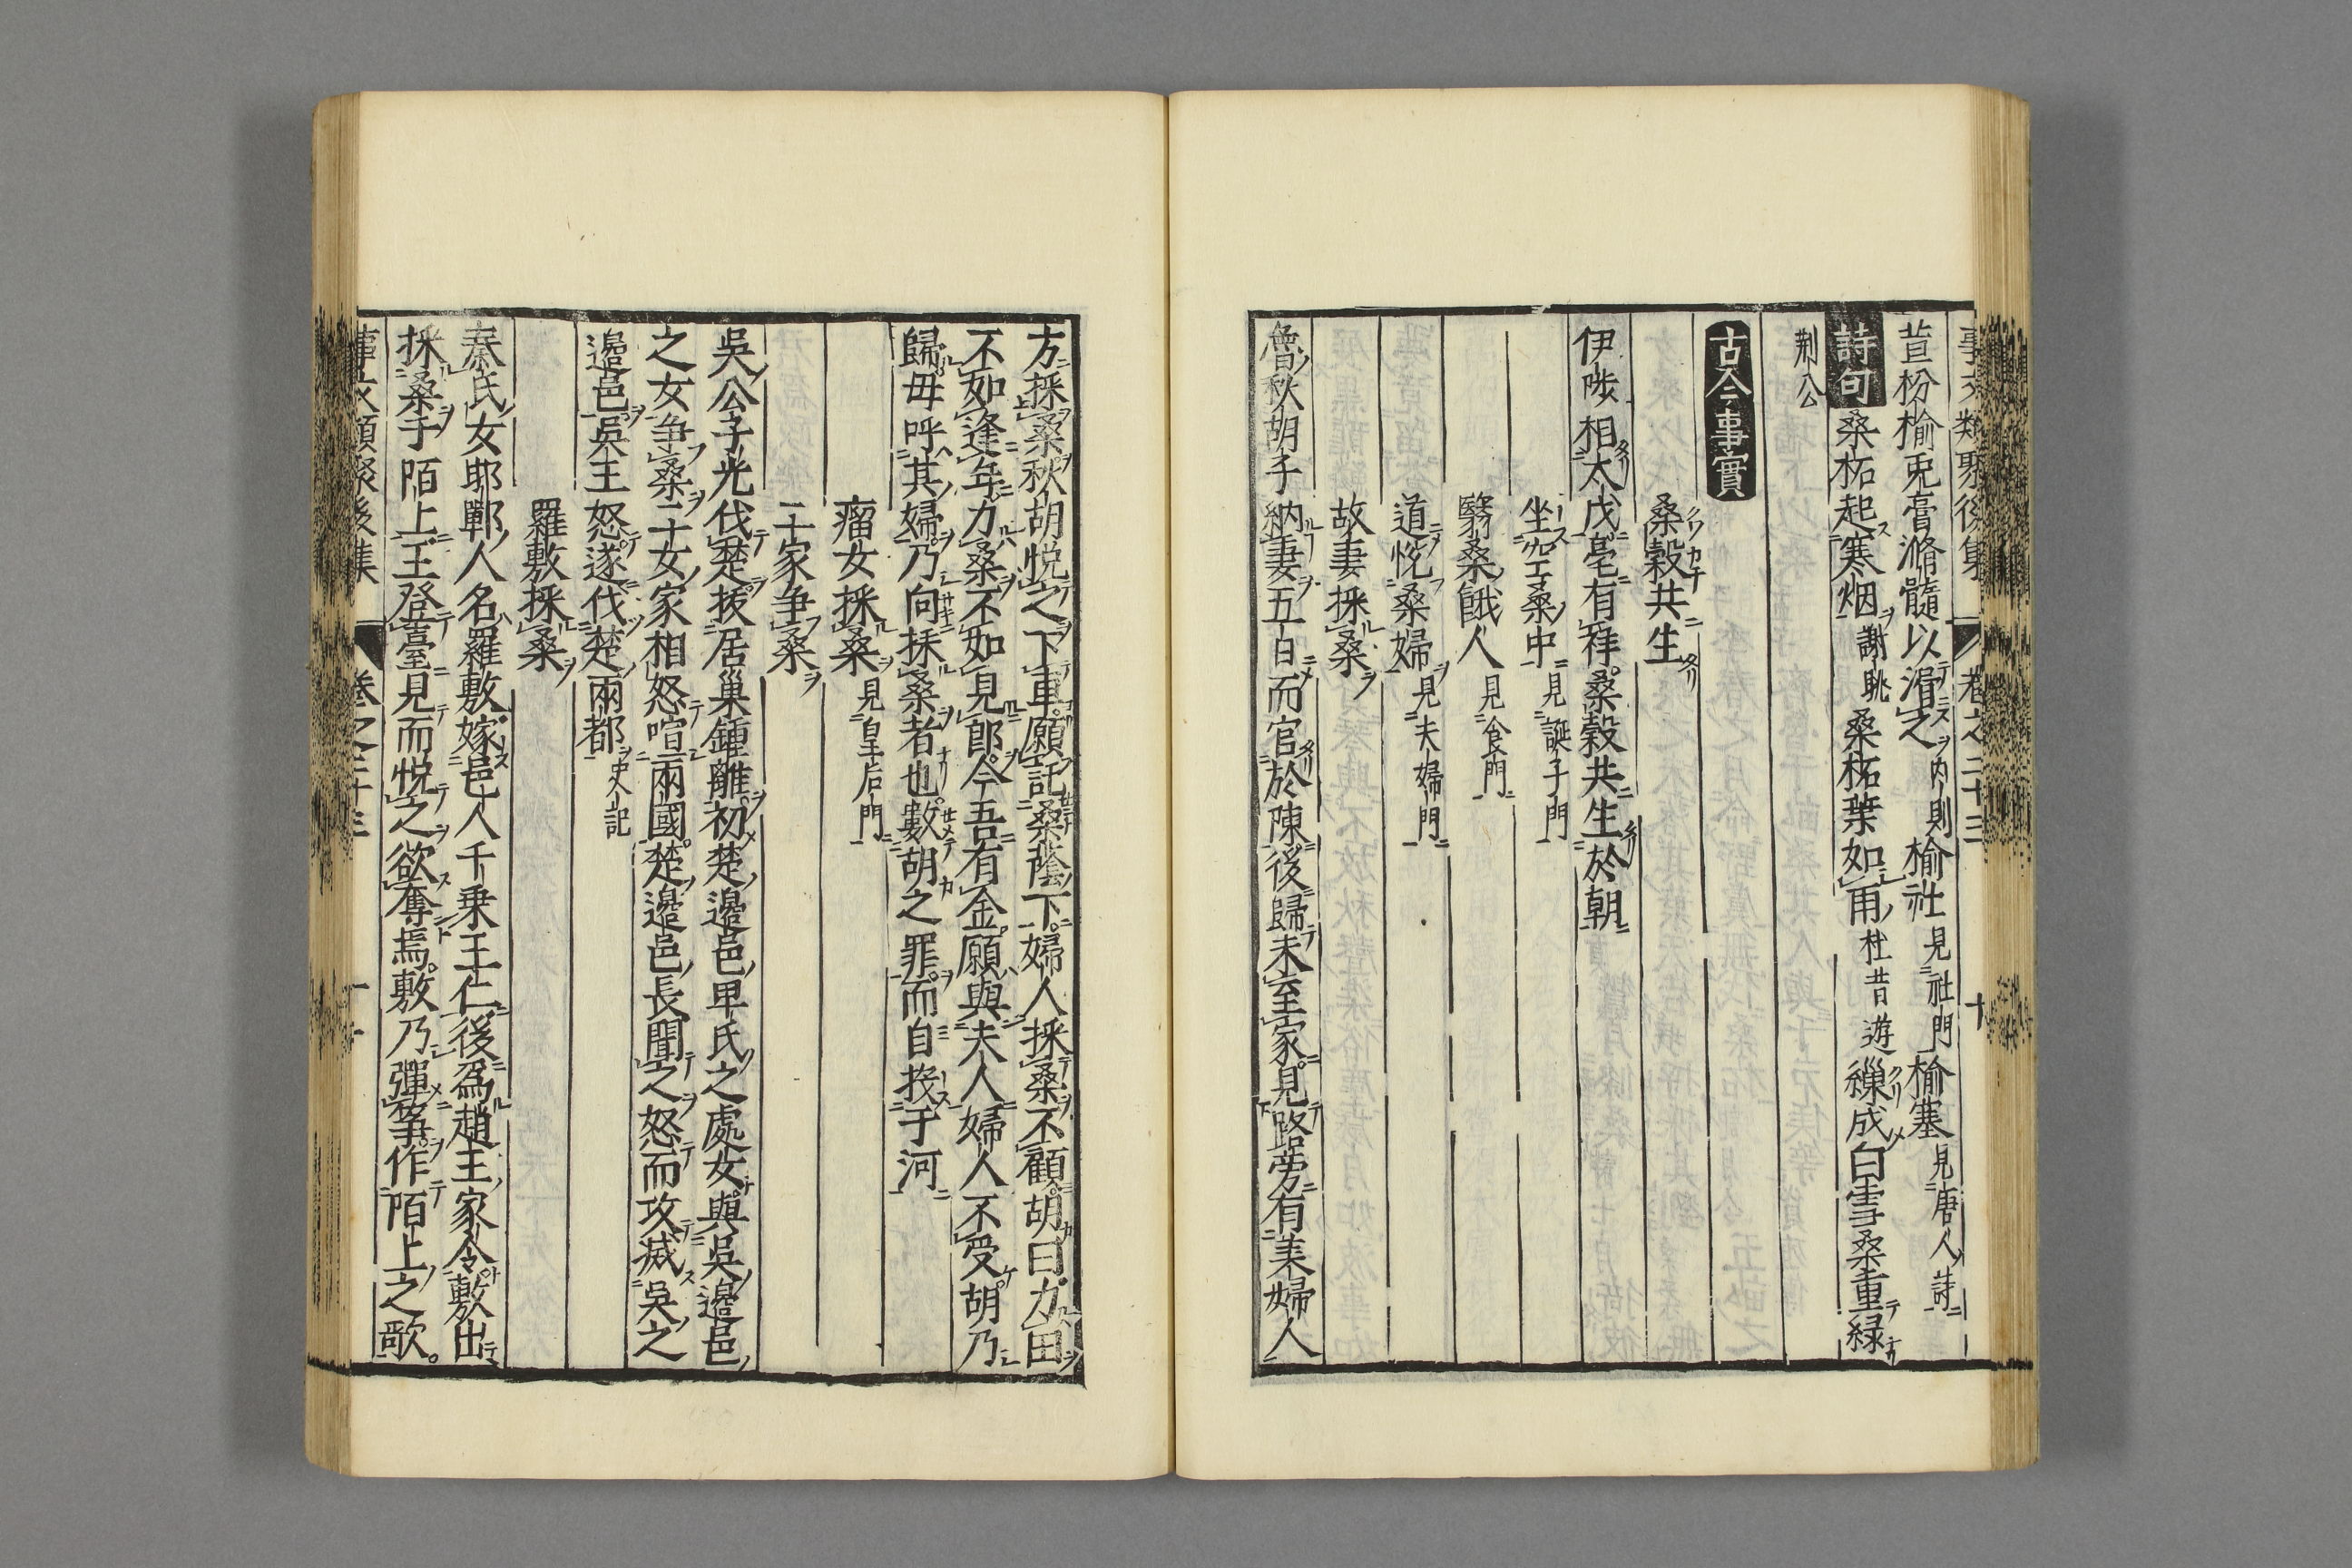 事文類聚後集 卷之二十三 十
荁枌榆免膏滫髓以滑之内則榆社見社門榆塞見唐人詩
詩句 桑柘起寒烟謝眺桑柘葉如雨杜昔遊繅成白雪桑重緑
荆公
古今事實
桑穀共生
伊陟相太戊亳有祥桑穀共生於朝
坐空桑中見誕子門
翳桑餓人見食門
道悅桑婦見夫婦門
故妻採桑
魯秋胡子納妻五日而官於陳後歸未至家見路旁有美婦人
方採桑秋胡悅之下車願託桑蔭下婦人採桑不顧胡曰力田
不如逢年力桑不如見郎今吾有金願與夫人婦人不受胡乃
歸母呼其婦乃向採桑者也數胡之罪而自投于河
瘤女採桑見皇后門
二家争桑
吳公子光伐楚拔居巢鍾離初楚邊邑卑氏之處女與吳邊邑
之女争桑二女家相怒喧兩國楚邊邑長聞之怒而攻滅吳之
邊邑吳王怒遂伐楚兩都史記
羅敷採桑
秦氏女邯鄲人名羅敷嫁邑人千乗王仁後爲趙王家令敷出
採桑于陌上王登臺見而悅之欲奪焉敷乃彈筝作陌上之歌
事文類聚後集 卷之二十三